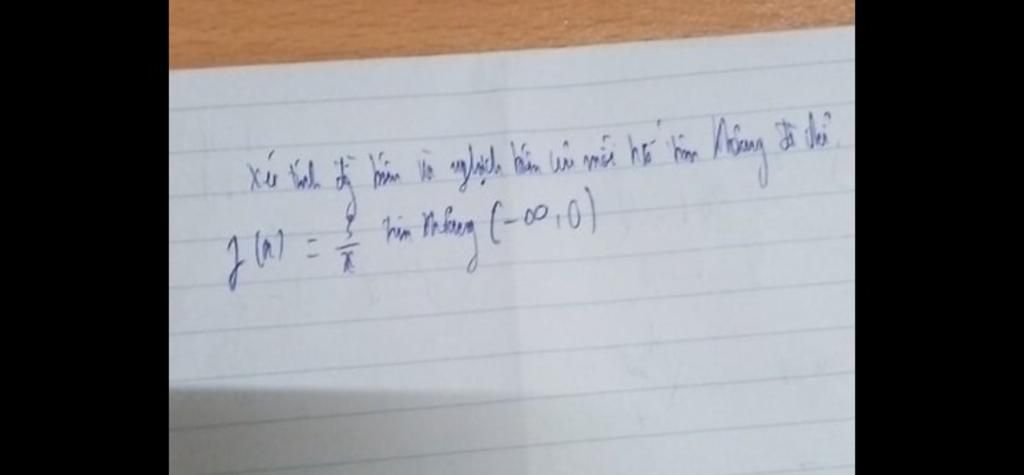 Xét tính đg biến và nghịch biến của mỗi h số trên khoảng đã chỉ.
f(x) = 3/x trên khoảng (-∞, 0)